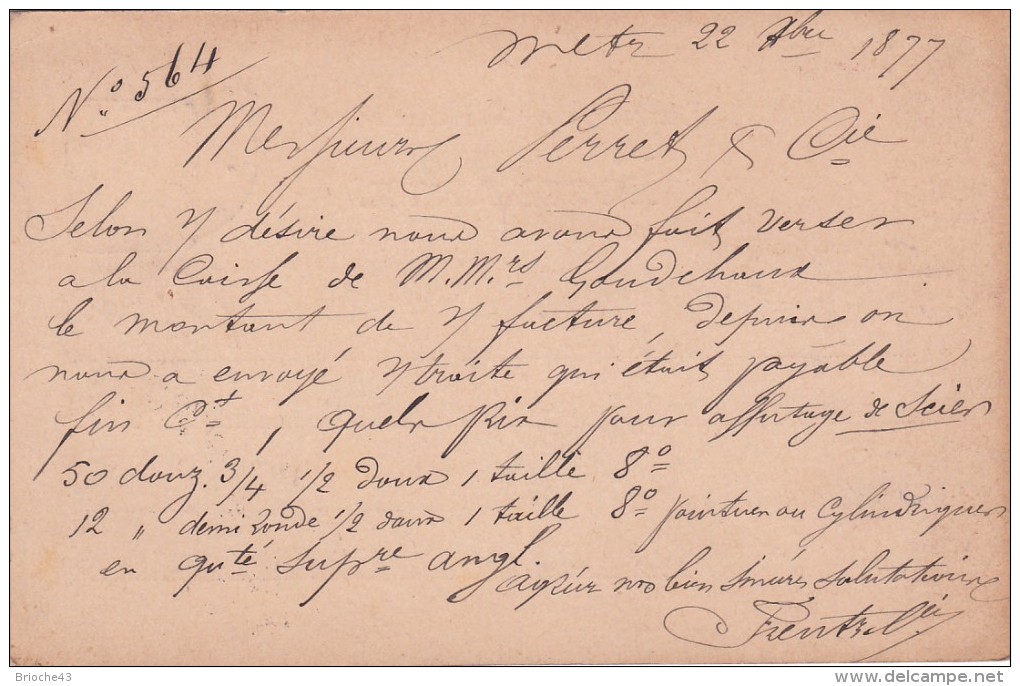 Metz 22 Xbre 1877
No. 564
Messieurs Perret & Cie
Selon V désire nous avons fait verser
a la Caisse de M.M.rs Goudchaux
le montant de V facture, depuis on
nous a envoyé V traite qui était payable
fin Ct, quels prix pour affutage de Scies
50 douz. 3/4 1/2 doux 1 taille 8o
12 " demi ronde 1/2 doux 1 taille 8o pointues ou Cylindriques
en qu.té supre angl.
Agréér nos bien sincères salutations
Brioche43
www.delcampe.net